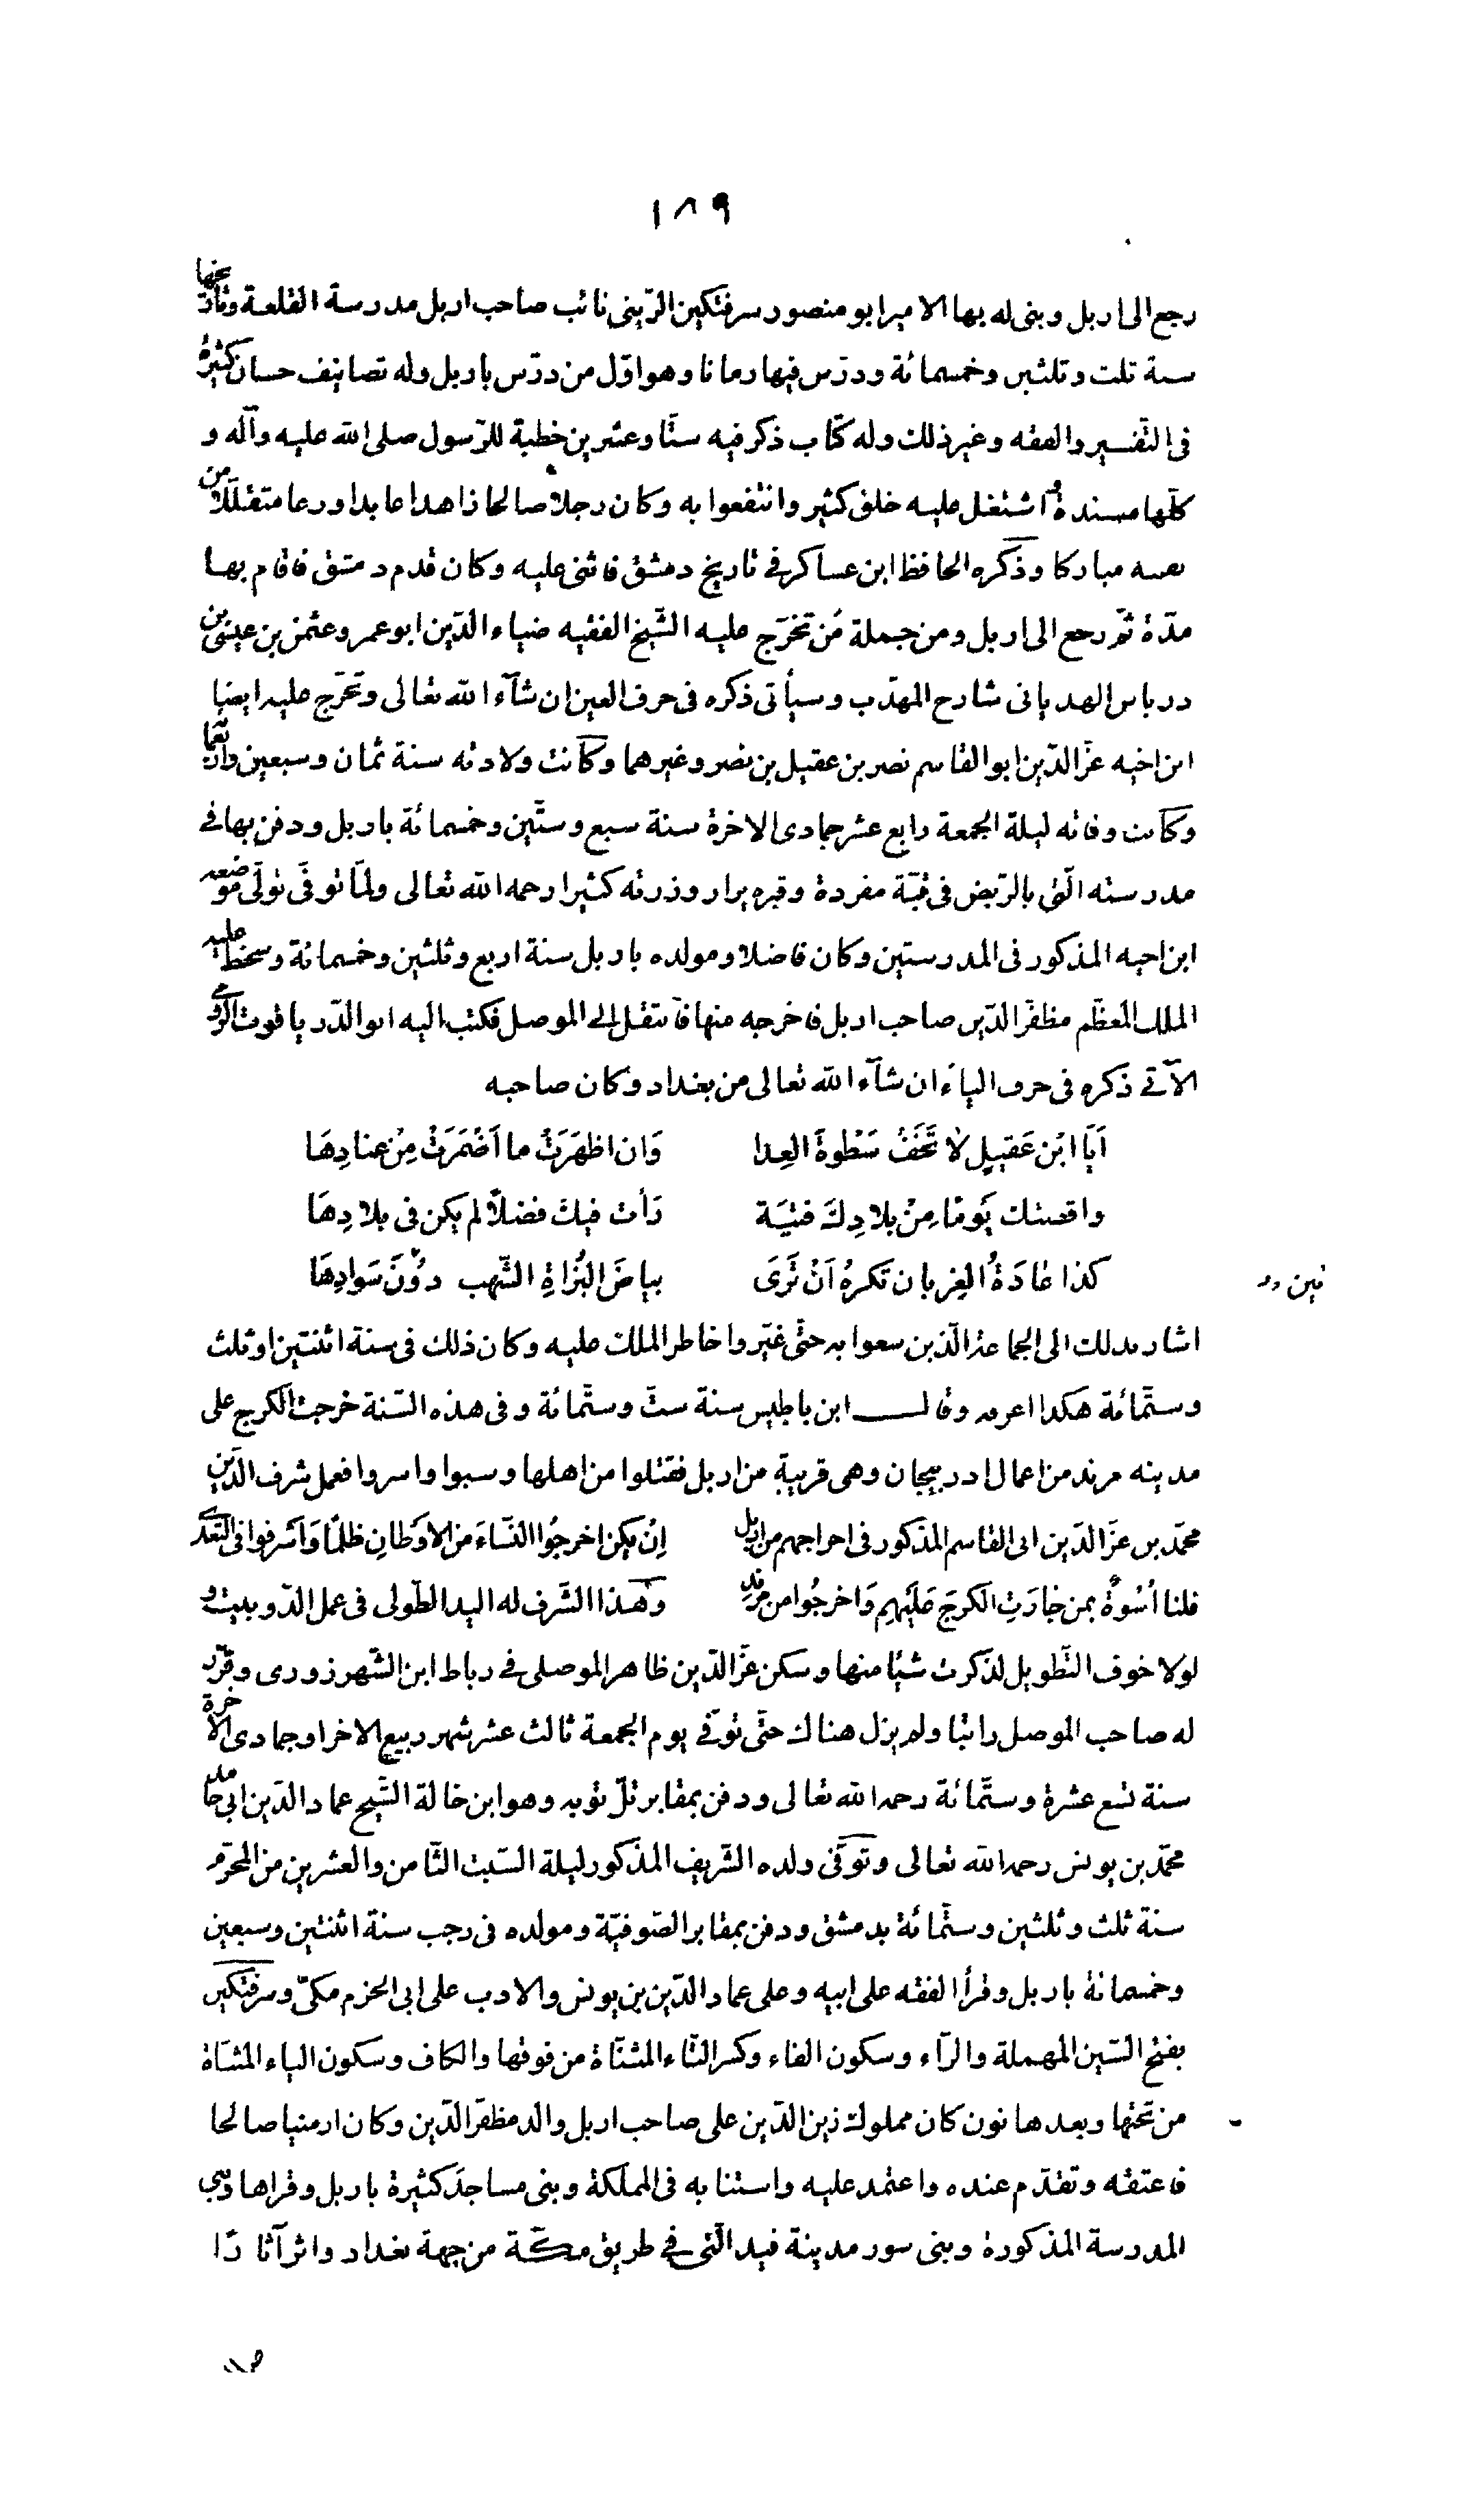 ١٨٩
رجع الى اربل وبنى له بها الامير ابو منصور سرفتكين الزينى نائب صاحب اربل مدرسة القلعة وتاريخها
سنة ثلث وثلثين وخمسمائة ودرّس فيها زمانا وهو اوّل من درّس باربل وله تصانيف حسان كثيرة
فى التفسير والفقه وغير ذلك وله كتاب ذكر فيه ستّا وعشرين خطبة للرّسول صلى الله عليه وآله و
كلّها مسندة اشتغل عليه خلق كثير وانتفعوا به وكان رجلا صالحا زاهدا عابدا ورعا متقلّلا من
نفسه مباركا وذكره الحافظ ابن عساكر فى تاريخ دمشق فاثنى عليه وكان قدم دمشق فاقام بها
مدّة ثمّ رجع الى اربل ومن جملة مَن تخرّج عليه الشّيخ الفقيه ضياء الدّين ابو عمرو عثمن بن عيسى بن
درباس الهدبانى شارح المهذّب وسيأتى ذكره فى حرف العين ان شآء الله تعالى وتخرّج عليه ايضا
ابن اخيه عزّ الدّين ابو القاسم نصر بن عقيل بن نصر وغيرهما وكانت ولادته سنة ثمان وسبعين واربعمائة
وكانت وفاته ليلة الجمعة رابع عشر جمادى الاخرة سنة سبع وستّين وخمسمائة باربل ودفن بها فى
مدرسته الّتى بالرّبض فى قبّة مفردة وقبره يزار وزرته كثيرا رحمه الله تعالى ولمّا توفّى تولّى موضعه
ابن اخيه المذكور فى المدرستين وكان فاضلا ومولده باربل سنة اربع وثلثين وخمسمائة وسخط عليه
الملك المعظّم مظفّر الدّين صاحب اربل فاخرجه منها فانتقل الى الموصل فكتب اليه ابو الدّر ياقوت الرّومى
الآتى ذكره فى حرف الياء ان شآء الله تعالى من بغداد وكان صاحبه
اَيَا ابْن عَقيلٍ لا تَخَفْ سَطْوةَ العِدا وَان اظهَرَتْ ما اَضْمَرَتْ مِنْ عِنادِهَا
واقصتك يَومًا مِنْ بلادِكَ فتيَة رَأت فيك فضلاً لم يكن فى بلادِهَا
كذا عَادَةُ الغِربان تَكرهُ اَنْ تَرَى بياضَ البُزاةِ الشّهب دوُنَ سَوادِهَا
اشار بذلك الى الجماعة الّذين سعوا به حتّى غيّروا خاطر الملك عليه وكان ذلك فى سنة اثنتين او ثلث
وستّمائة هكذا اعرفه وقال ابن باطيس سنة ستّ وستّمائة وفى هذه السّنة خرجت الكرج على
مدينة مرند من اعمال اذربيجان وهى قريبة من اربل فقتلوا من اهلها وسبوا واسروا فعمل شرف الدّين
محمّد بن عزّ الدّين ابى القاسم المذكور فى اخراجهم من اربل اِنْ يكن اخرجُوا النّساءَ من الاوَطانِ ظلمًا وَاَسْرفوا فى التعدّى
فلنا اُسْوةٌ بمن جارَتِ الكرجَ عَلَيهِم وَاخرجُوا من مرندِ وهذا الشّرف له اليد الطّولى فى عمل الدّوبيت و
لولا خوف التّطويل لذكرت شيئا منها وسكن عزّ الدّين ظاهر الموصلى فى رباط ابن الشّهرزورى وقرّر
له صاحب الموصل راتبا ولم يزل هناك حتّى توفّى يوم الجمعة ثالث عشر شهر ربيع الاخر او جمادى الاخرة
سنة تسع عشرة وستّمائة رحمه الله تعالى ودفن بمقابر تلّ توبه وهو ابن خالة الشّيخ عماد الدّين ابى حامد
محمّد بن يونس رحمه الله تعالى وتوفّى ولده الشّريف المذكور ليلة السّبت الثّامن والعشرين من المحرّم
سنة ثلث وثلثين وستّمائة بدمشق ودفن بمقابر الصّوفيّة ومولده فى رجب سنة اثنتين وسبعين
وخمسمائة باربل وقرأ الفقه على ابيه وعلى عماد الدّين بن يونس والادب على ابى الحزم مكّى وسرفتكين
بفتح السّين المهملة والرّاء وسكون الفاء وكسر التّاء المثنّاة من فوقها والكاف وسكون الياء المثنّاة
من تحتها وبعدها نون كان مملوك زين الدّين على صاحب اربل والد مظفّر الدّين وكان ارمنيا صالحا
فاعتقه وتقدّم عنده واعتمد عليه واستنابه فى المملكة وبنى مساجدَ كثيرة باربل وقراها وبنى
المدرسة المذكورة وبنى سور مدينة فيد الّتى فى طريق مكّة من جهة بغداد واثر آثارًا